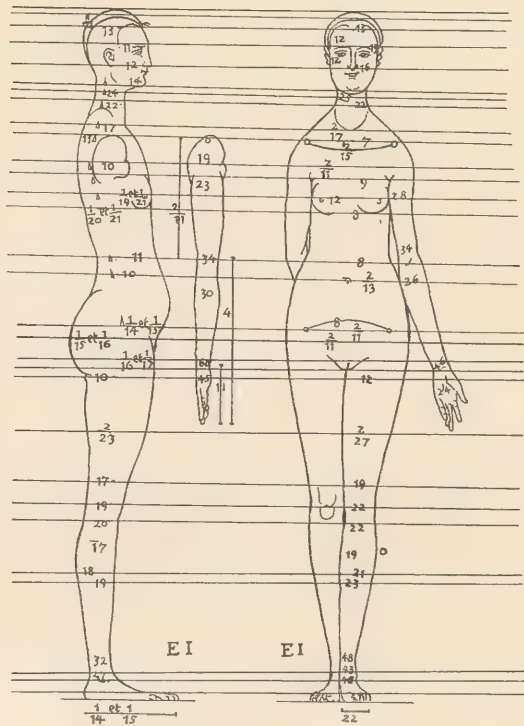 13
11
2
12
14
24
22
17
11
10
1/19 et 1/21
1/20 et 1/21
11
10
1/14 et 1/15
1/15 et 1/16
1/16 et 1/17
10
2/23
17
19
20
17
18
19
32
1 et 1
14 15
19
23
2/21
34
30
4
45
11
E I
13
12
12
16
22
2/17
7
2/15
2/11
9
12
28
8
34
8
2/13
26
8
2/11
2/11
12
2/27
19
22
22
19
21
23
48
43
E I
22